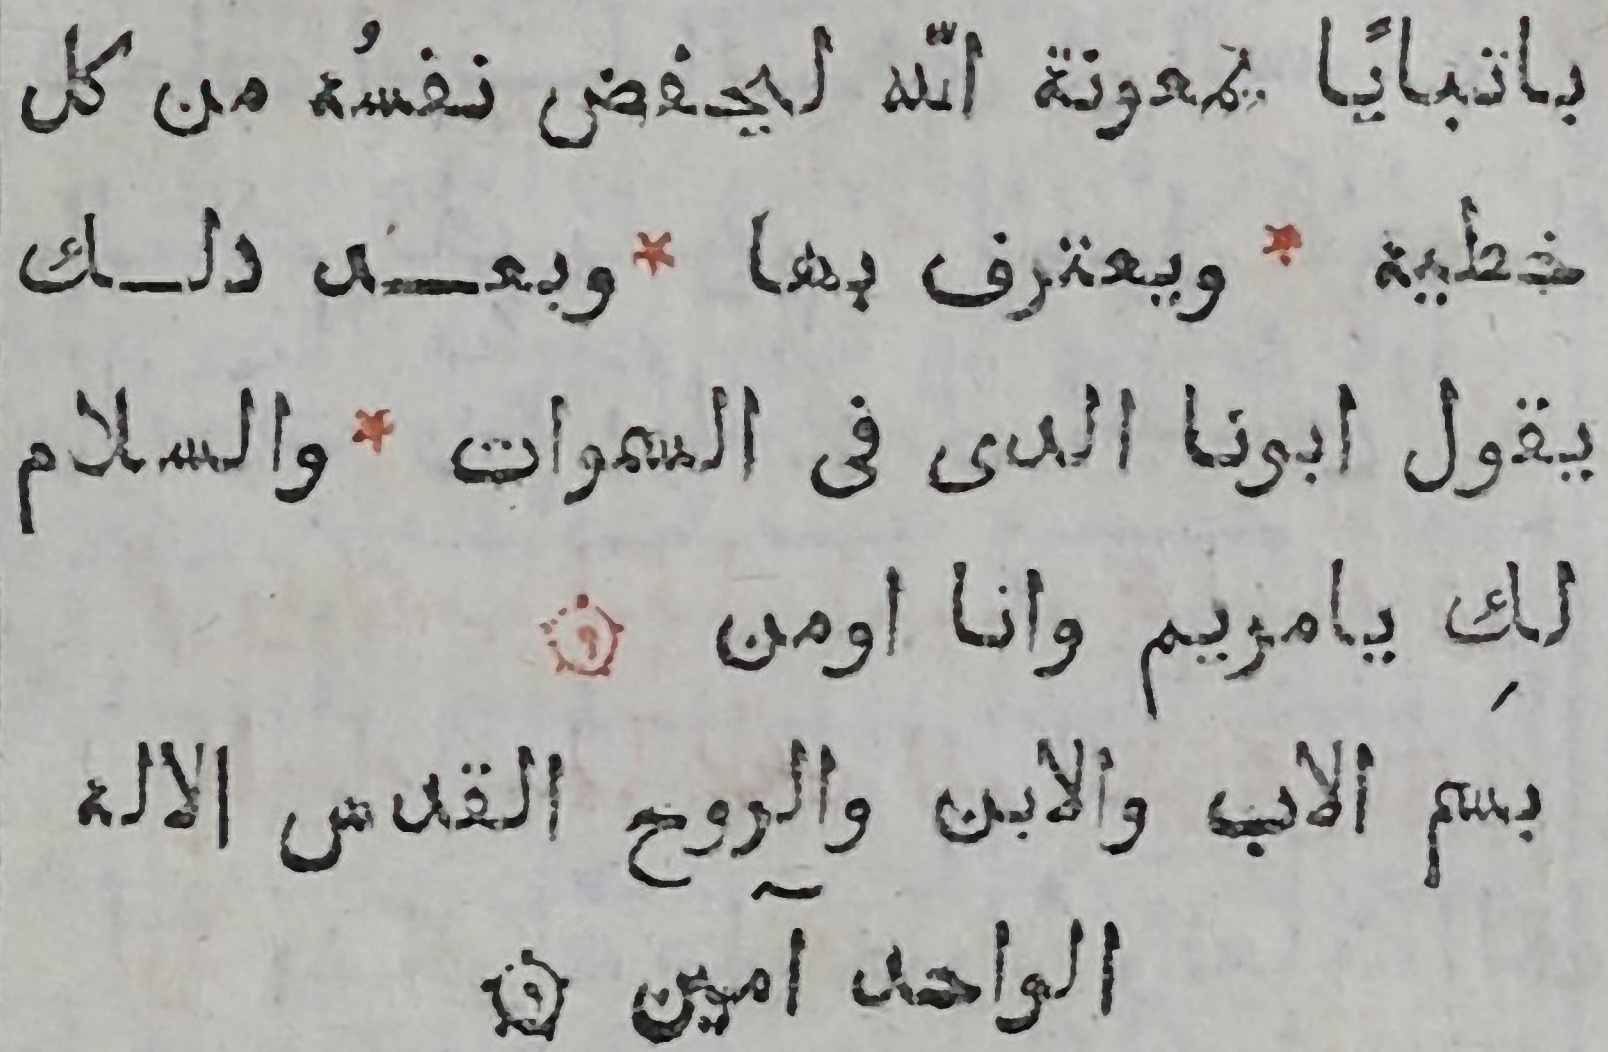 باتبايًا بمعونة الله ليحفض نفسُه من كل
خطية * ويعترف بها * وبعـــد دلـــك
يقول ابونا الدى فى السموات * والسلام
لكِ يامريم وانا اومن
بسم الاب والابن والروح القدس الاله
الواحد آمين